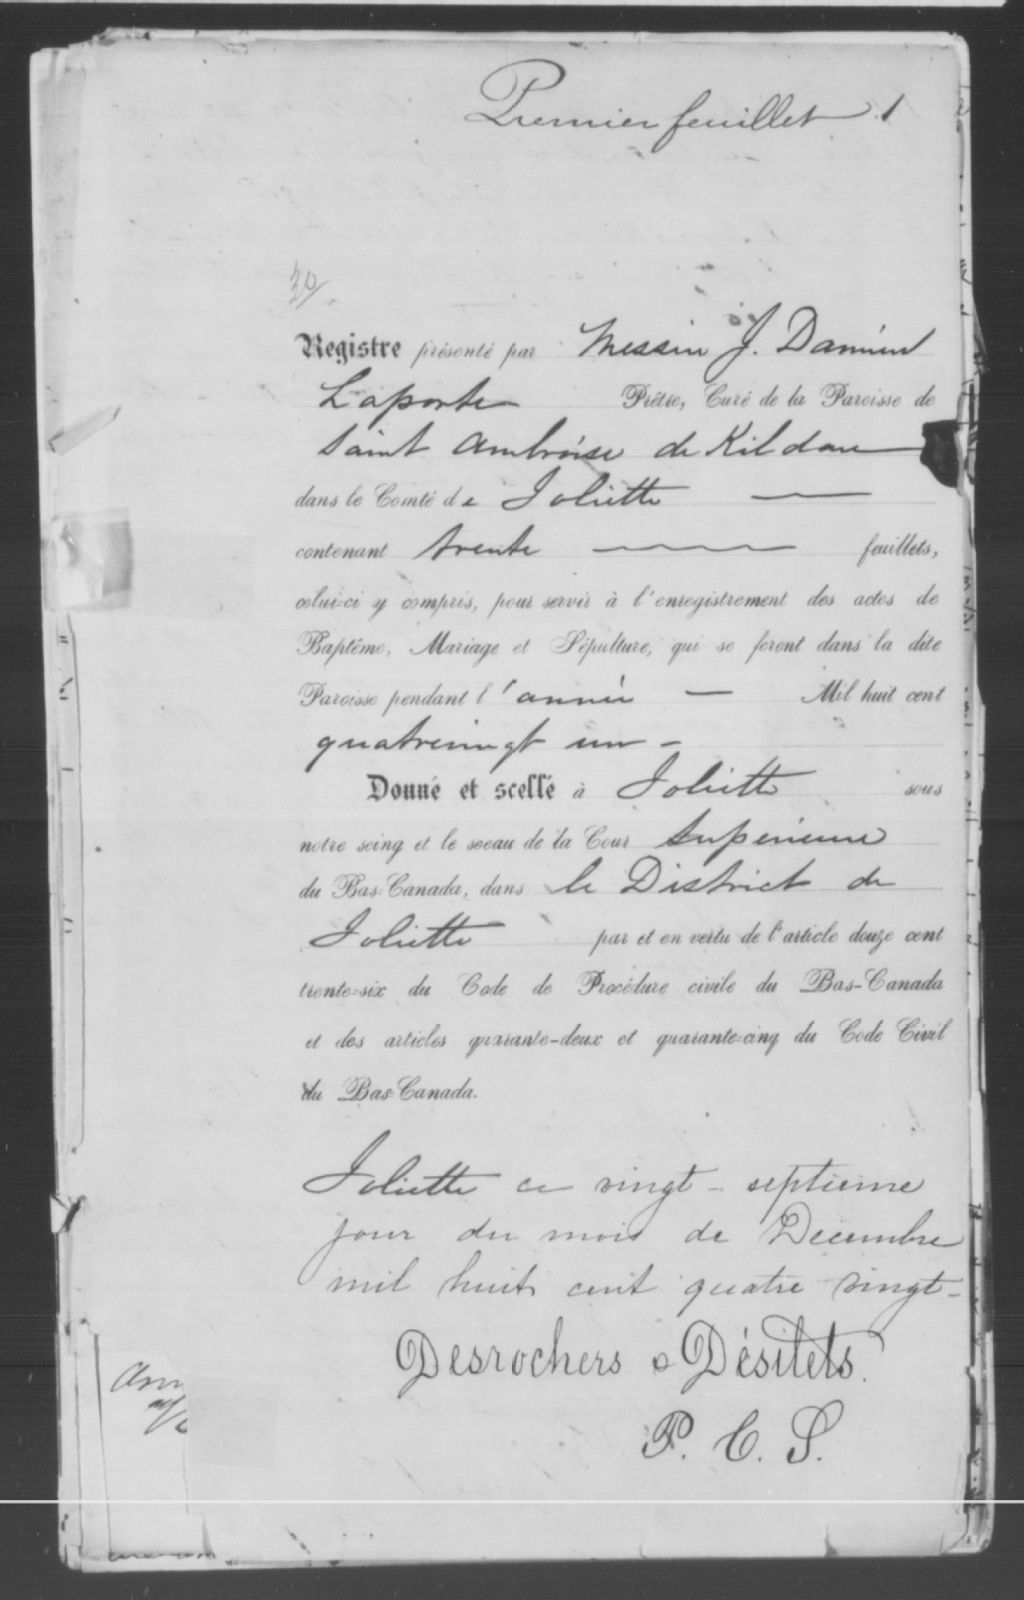 Premier feuillet 1
30/.
Registre présenté par Messire J. Damien
Laporte Prêtre, Curé de la Paroisse de
Saint Ambroise de Kildare
dans le Comté de Joliette
contenant trente feuillets,
celui-ci y compris, pour servir à l'enregistrement des actes de
Baptême, Mariage et Sépulture, qui se feront dans la dite
Paroisse pendant l'année — Mil huit cent
quatrevingt un -
Donné et scellé à Joliette sous
notre seing et le sceau de la Cour Supérieure
du Bas-Canada, dans le District de
Joliette par et en vertu de l'article douze cent
trente-six du Code de Procédure civile du Bas-Canada
et des articles quarante-deux et quarante-cinq du Code Civil
du Bas-Canada.
Joliette ce vingt-septieme
jour du mois de Decembre
mil huit cent quatre vingt-
Desrochers & Désilets.
P. C. S.